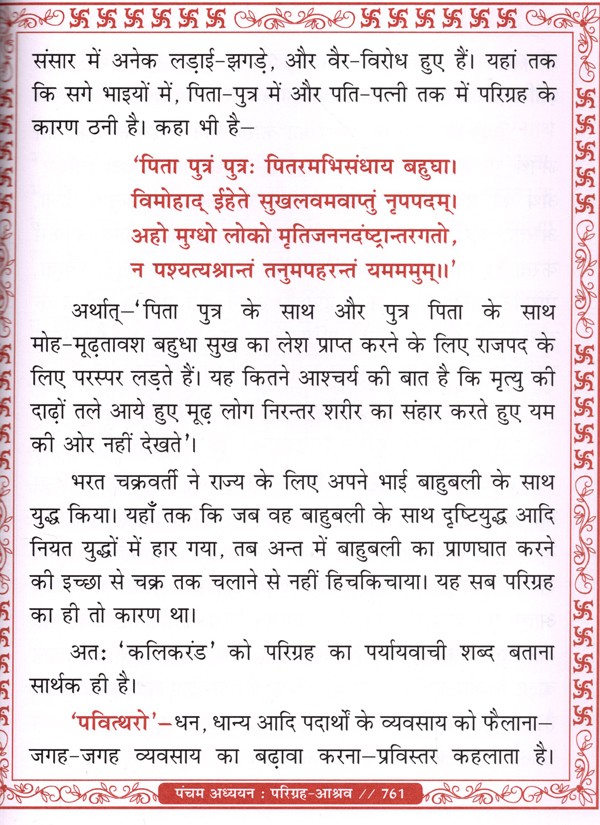 संसार में अनेक लड़ाई-झगड़े, और वैर-विरोध हुए हैं। यहां तक
कि सगे भाइयों में, पिता-पुत्र में और पति-पत्नी तक में परिग्रह के
कारण ठनी है। कहा भी है—
‘पिता पुत्रं पुत्रः पितरमभिसंधाय बहुघा।
विमोहाद् ईहेते सुखलवमवाप्तुं नृपपदम्।
अहो मुग्धो लोको मृतिजननदंष्ट्रान्तरगतो,
न पश्यत्यश्रान्तं तनुमपहरन्तं यमममुम्॥’
अर्थात्—‘पिता पुत्र के साथ और पुत्र पिता के साथ
मोह-मूढ़तावश बहुधा सुख का लेश प्राप्त करने के लिए राजपद के
लिए परस्पर लड़ते हैं। यह कितने आश्चर्य की बात है कि मृत्यु की
दाढ़ों तले आये हुए मूढ़ लोग निरन्तर शरीर का संहार करते हुए यम
की ओर नहीं देखते’।
भरत चक्रवर्ती ने राज्य के लिए अपने भाई बाहुबली के साथ
युद्ध किया। यहाँ तक कि जब वह बाहुबली के साथ दृष्टियुद्ध आदि
नियत युद्धों में हार गया, तब अन्त में बाहुबली का प्राणघात करने
की इच्छा से चक्र तक चलाने से नहीं हिचकिचाया। यह सब परिग्रह
का ही तो कारण था।
अतः ‘कलिकरंड’ को परिग्रह का पर्यायवाची शब्द बताना
सार्थक ही है।
‘पवित्थरो’—धन, धान्य आदि पदार्थों के व्यवसाय को फैलाना—
जगह-जगह व्यवसाय का बढ़ावा करना—प्रविस्तर कहलाता है।
पंचम अध्ययन : परिग्रह-आश्रव // 761